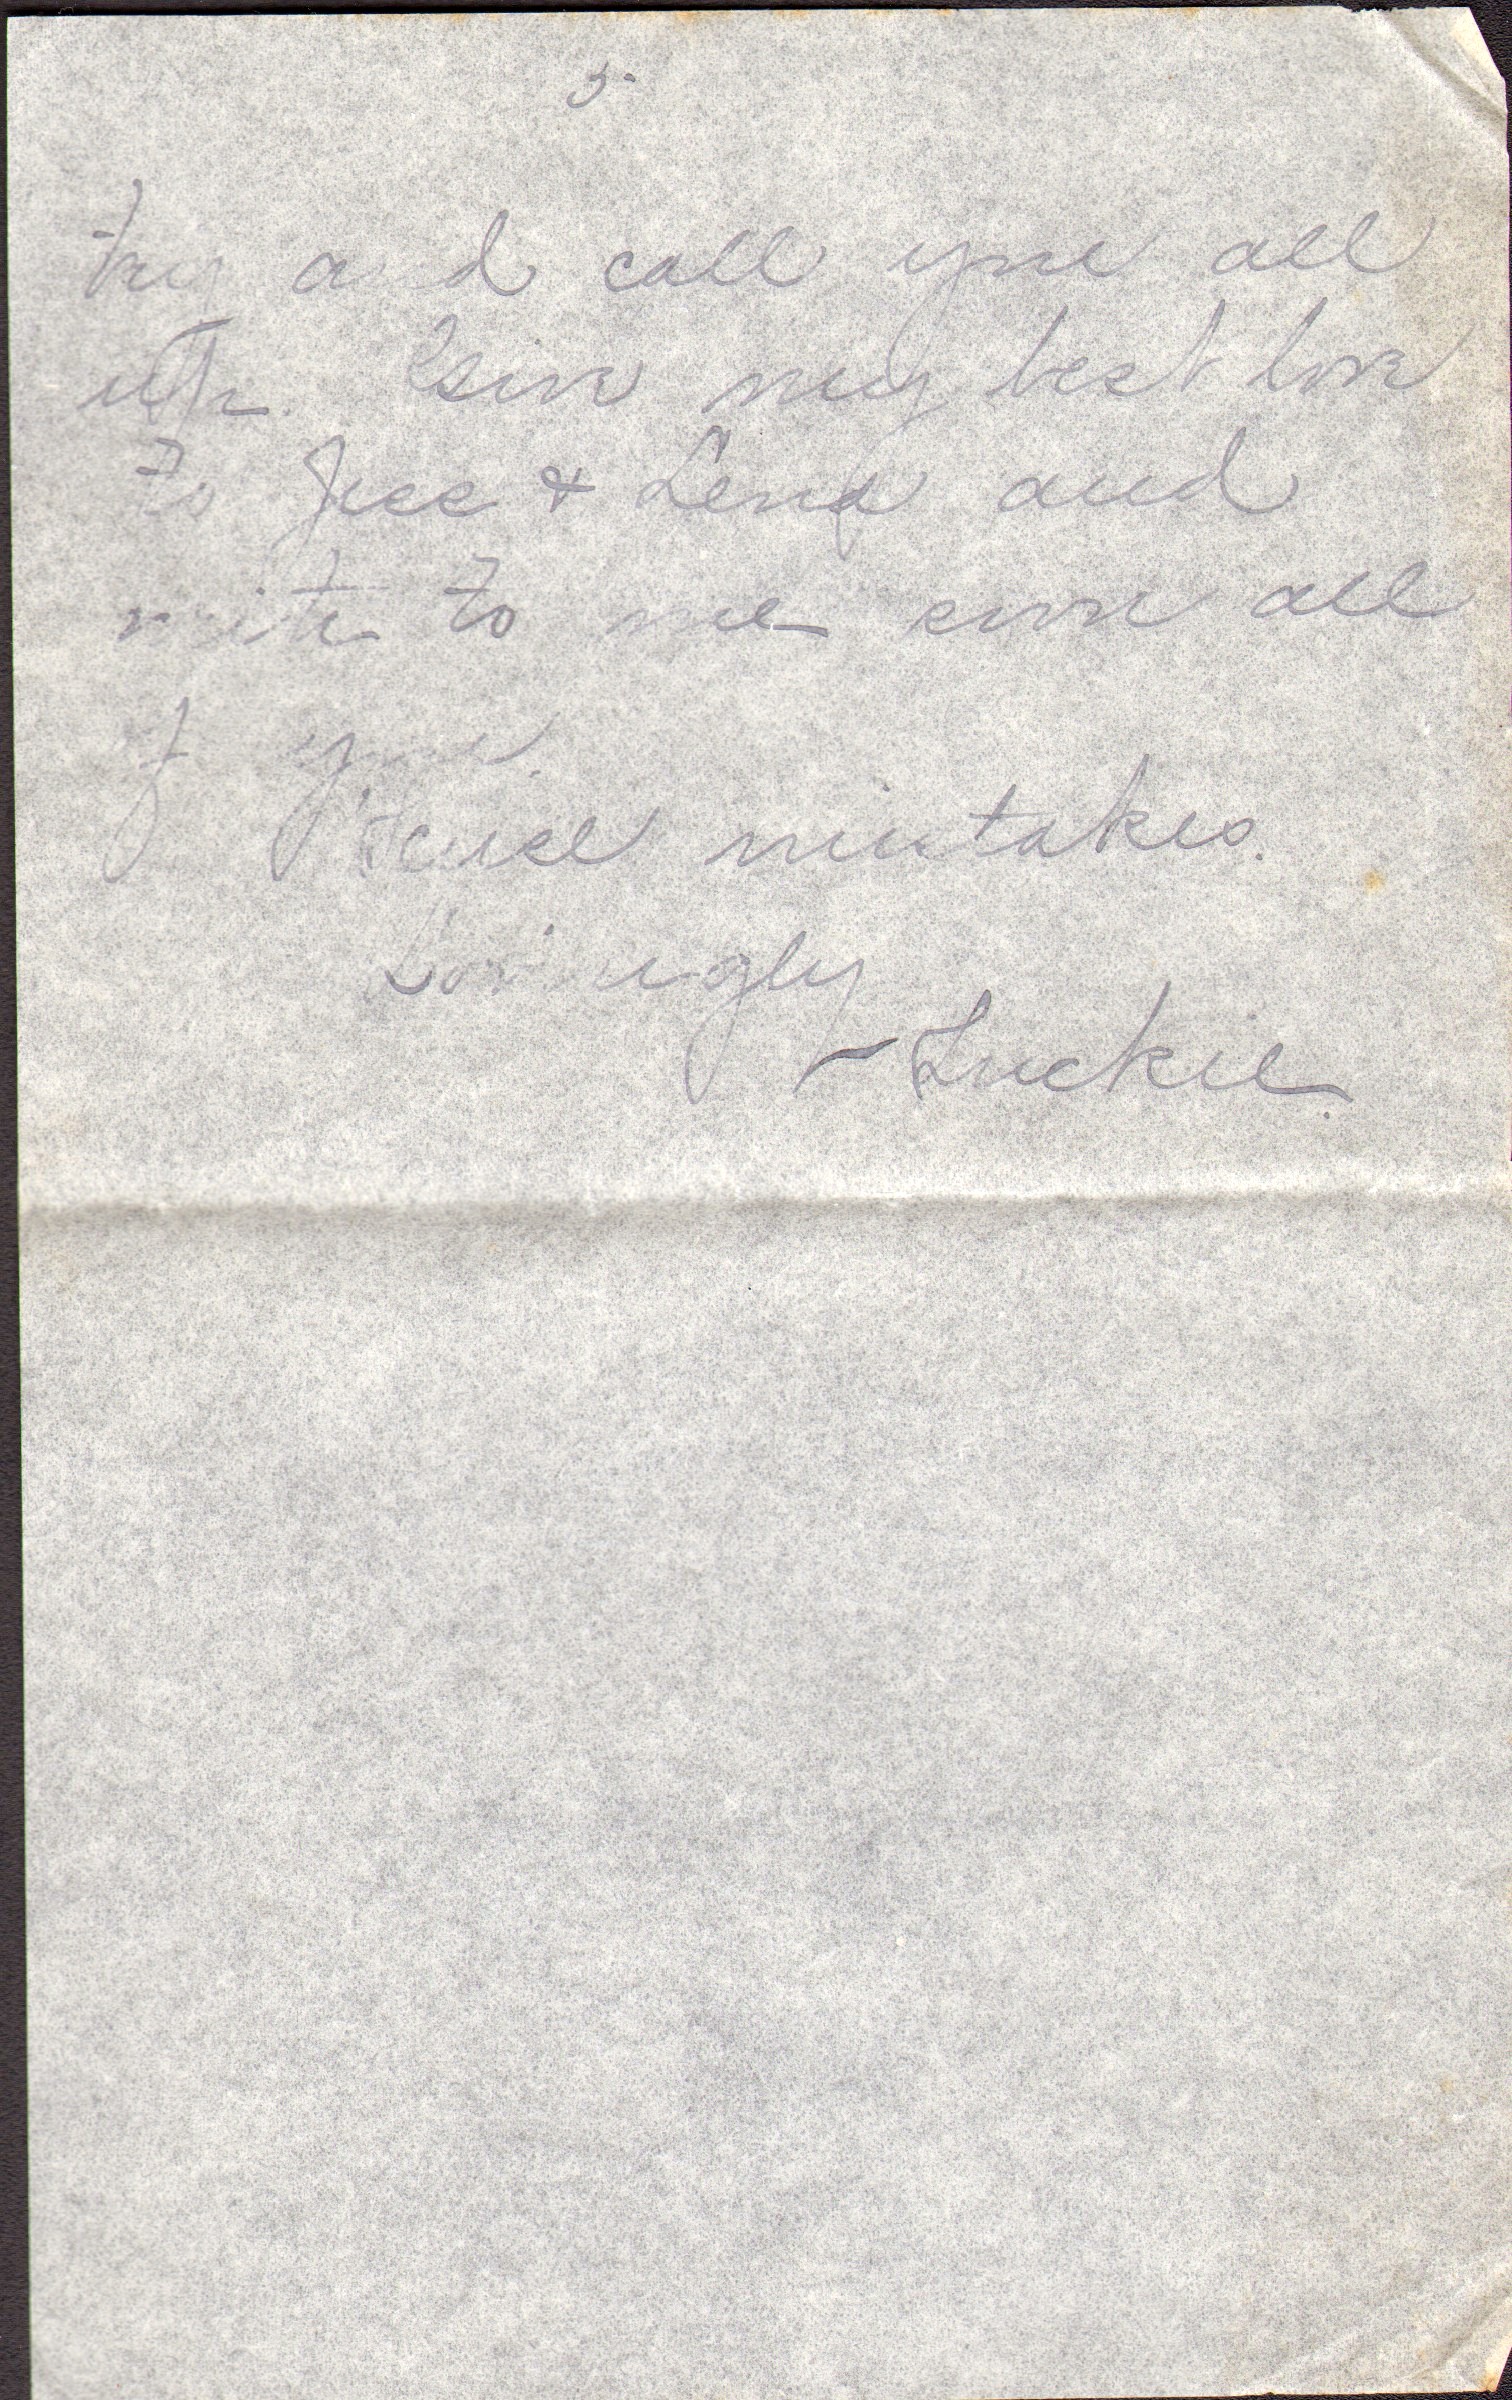 5-
try and call you all
up. Give my best love
to Jess & Lena and
write to me soon all
of you.
'scuse mistakes.
Lovingly
- Luckie.